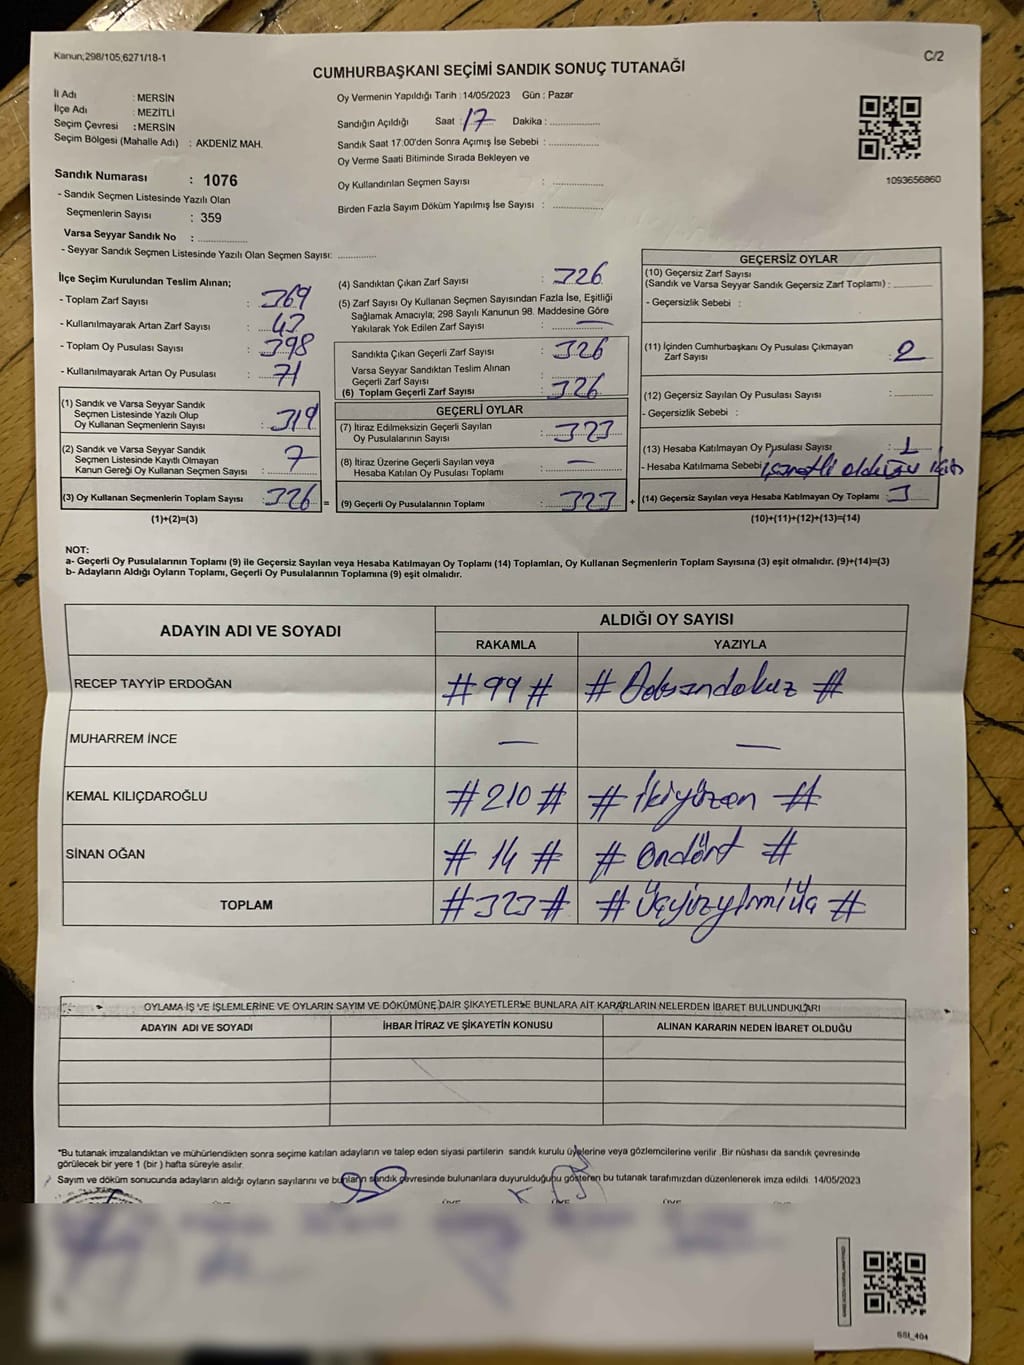 Kanun;298/105,6271/18-1
C/2
CUMHURBAŞKANI SEÇİMİ SANDIK SONUÇ TUTANAĞI
İl Adı : MERSİN
İlçe Adı : MEZİTLİ
Seçim Çevresi : MERSİN
Seçim Bölgesi (Mahalle Adı) : AKDENİZ MAH.
Sandık Numarası : 1076
- Sandık Seçmen Listesinde Yazılı Olan
Seçmenlerin Sayısı : 359
Varsa Seyyar Sandık No :
- Seyyar Sandık Seçmen Listesinde Yazılı Olan Seçmen Sayısı:
Oy Vermenin Yapıldığı Tarih : 14/05/2023 Gün : Pazar
Sandığın Açıldığı Saat : 17 Dakika :
Sandık Saat 17:00'den Sonra Açımış İse Sebebi :
Oy Verme Saati Bitiminde Sırada Bekleyen ve
Oy Kullandırılan Seçmen Sayısı :
Birden Fazla Sayım Döküm Yapılmış İse Sayısı :
1093656860
İlçe Seçim Kurulundan Teslim Alınan;
- Toplam Zarf Sayısı : 369
- Kullanılmayarak Artan Zarf Sayısı : 43
- Toplam Oy Pusulası Sayısı : 398
- Kullanılmayarak Artan Oy Pusulası : 71
(1) Sandık ve Varsa Seyyar Sandık
Seçmen Listesinde Yazılı Olup
Oy Kullanan Seçmenlerin Sayısı : 319
(2) Sandık ve Varsa Seyyar Sandık
Seçmen Listesinde Kayıtlı Olmayan
Kanun Gereği Oy Kullanan Seçmen Sayısı : 7
(3) Oy Kullanan Seçmenlerin Toplam Sayısı : 326 =
(1)+(2)=(3)
(4) Sandıktan Çıkan Zarf Sayısı : 326
(5) Zarf Sayısı Oy Kullanan Seçmen Sayısından Fazla İse, Eşitliği
Sağlamak Amacıyla; 298 Sayılı Kanunun 98. Maddesine Göre
Yakılarak Yok Edilen Zarf Sayısı : —
Sandıkta Çıkan Geçerli Zarf Sayısı : 326
Varsa Seyyar Sandıktan Teslim Alınan
Geçerli Zarf Sayısı :
(6) Toplam Geçerli Zarf Sayısı 326
GEÇERLİ OYLAR
(7) İtiraz Edilmeksizin Geçerli Sayılan
Oy Pusulalarının Sayısı : 323
(8) İtiraz Üzerine Geçerli Sayılan veya
Hesaba Katılan Oy Pusulası Toplamı : —
(9) Geçerli Oy Pusulalarının Toplamı : 323 +
GEÇERSİZ OYLAR
(10) Geçersiz Zarf Sayısı
(Sandık ve Varsa Seyyar Sandık Geçersiz Zarf Toplamı) :
- Geçersizlik Sebebi :
(11) İçinden Cumhurbaşkanı Oy Pusulası Çıkmayan
Zarf Sayısı : 2
(12) Geçersiz Sayılan Oy Pusulası Sayısı :
- Geçersizlik Sebebi :
(13) Hesaba Katılmayan Oy Pusulası Sayısı : 1
- Hesaba Katılmama Sebebi : işaretli olduğu için
(14) Geçersiz Sayılan veya Hesaba Katılmayan Oy Toplamı : 3
(10)+(11)+(12)+(13)=(14)
NOT:
a- Geçerli Oy Pusulalarının Toplamı (9) ile Geçersiz Sayılan veya Hesaba Katılmayan Oy Toplamı (14) Toplamları, Oy Kullanan Seçmenlerin Toplam Sayısına (3) eşit olmalıdır. (9)+(14)=(3)
b- Adayların Aldığı Oyların Toplamı, Geçerli Oy Pusulalarının Toplamına (9) eşit olmalıdır.
ADAYIN ADI VE SOYADI
ALDIĞI OY SAYISI
RAKAMLA YAZIYLA
RECEP TAYYİP ERDOĞAN # 99 # # Doksandokuz #
MUHARREM İNCE — —
KEMAL KILIÇDAROĞLU # 210 # # İkiyüzon #
SİNAN OĞAN # 14 # # Ondört #
TOPLAM # 323 # # Üçyüzyirmiüç #
OYLAMA İŞ VE İŞLEMLERİNE VE OYLARIN SAYIM VE DÖKÜMÜNE DAİR ŞİKAYETLERLE BUNLARA AİT KARARLARIN NELERDEN İBARET BULUNDUKLARI
ADAYIN ADI VE SOYADI İHBAR İTİRAZ VE ŞİKAYETİN KONUSU ALINAN KARARIN NEDEN İBARET OLDUĞU
*Bu tutanak imzalandıktan ve mühürlendikten sonra seçime katılan adayların ve talep eden siyasi partilerin sandık kurulu üyelerine veya gözlemcilerine verilir .Bir nüshası da sandık çevresinde
görülecek bir yere 1 (bir ) hafta süreyle asılır.
Sayım ve döküm sonucunda adayların aldığı oyların sayılarını ve bunların sandık çevresinde bulunanlara duyurulduğunu gösteren bu tutanak tarafımızdan düzenlenerek imza edildi. 14/05/2023
SSI_404